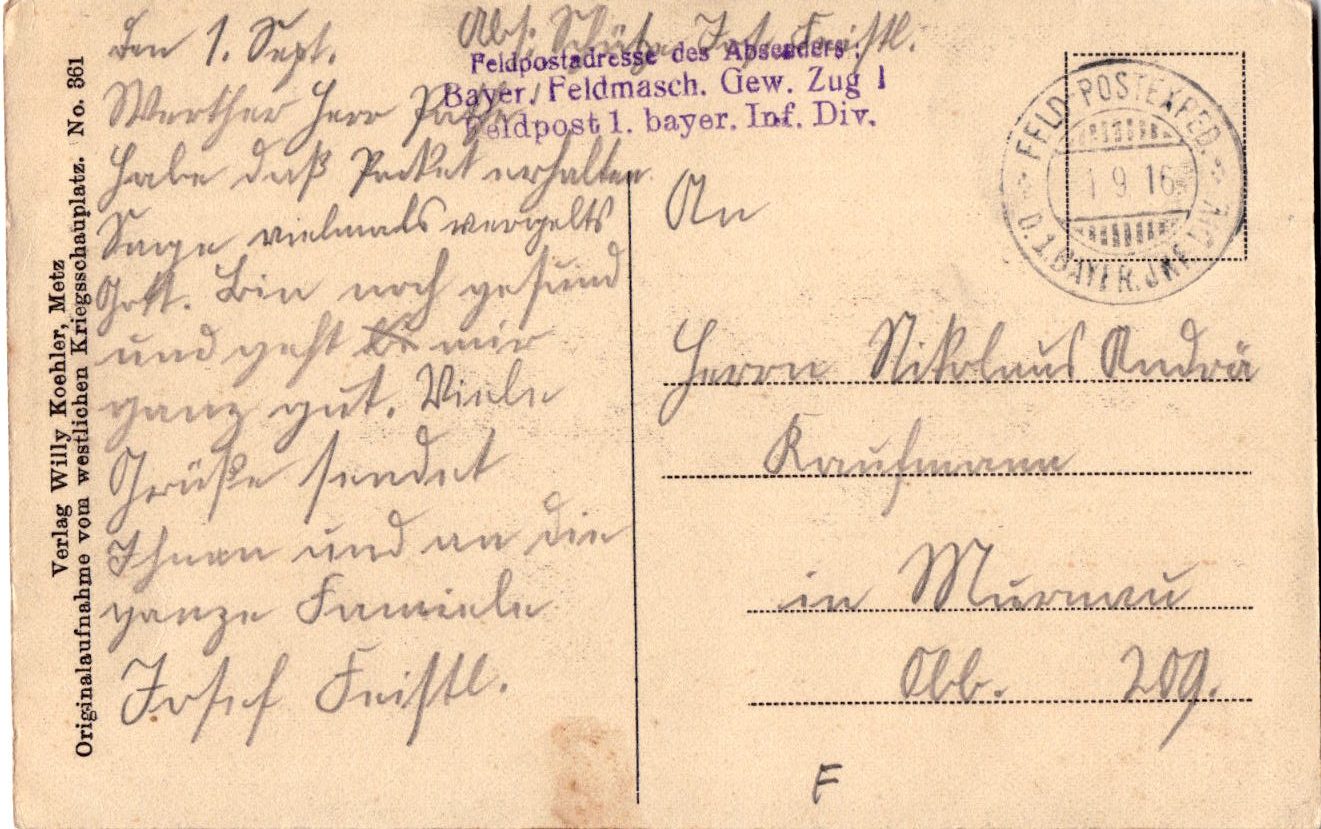 Den 1. Sept.
Abs: Schütze Josef Feistl.
Feldpostadresse des Absenders:
Bayer. Feldmasch. Gew. Zug 1
Feldpost 1. bayer. Inf. Div.
Werther Herr
Habe daß Paket erhalten
Sage vielmals vergelts
Gott. Bin noch gesund
und geht mir
ganz gut. Viele
Grüße sendet
Ihnen und an die
ganze Famiele
Josef Feistl.
An
Herrn Nikolaus Andrä
Kaufmann
in Murnau
Obb. 209.
F
FELD-POSTEXPED.
1 9 16
D. 1. BAYER. JNF. DIV.
Verlag Willy Koehler, Metz
Originalaufnahme vom westlichen Kriegsschauplatz. No. 361